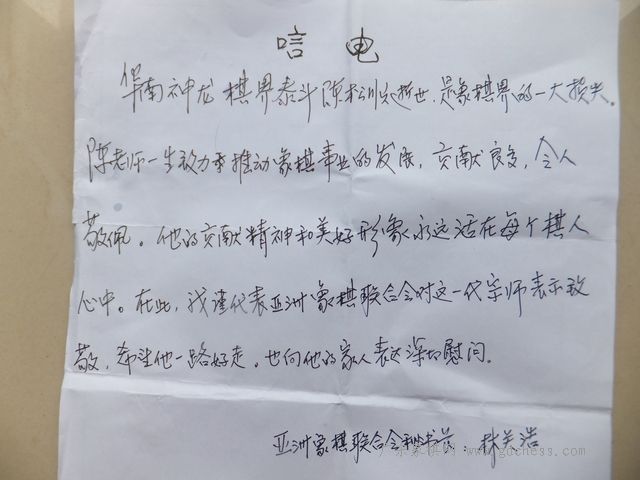 唁电
华南神龙棋界泰斗陈松顺逝世,是象棋界的一大损失。
陈老师一生致力于推动象棋事业的发展,贡献良多,令人
敬佩。他的贡献精神和美好形象永远活在每个棋人
心中。在此,我谨代表亚洲象棋联合会对这一代宗师表示致
敬,希望他一路好走。也向他的家人表达深切慰问。
亚洲象棋联合会秘书长:林关浩
www.gdchess.com